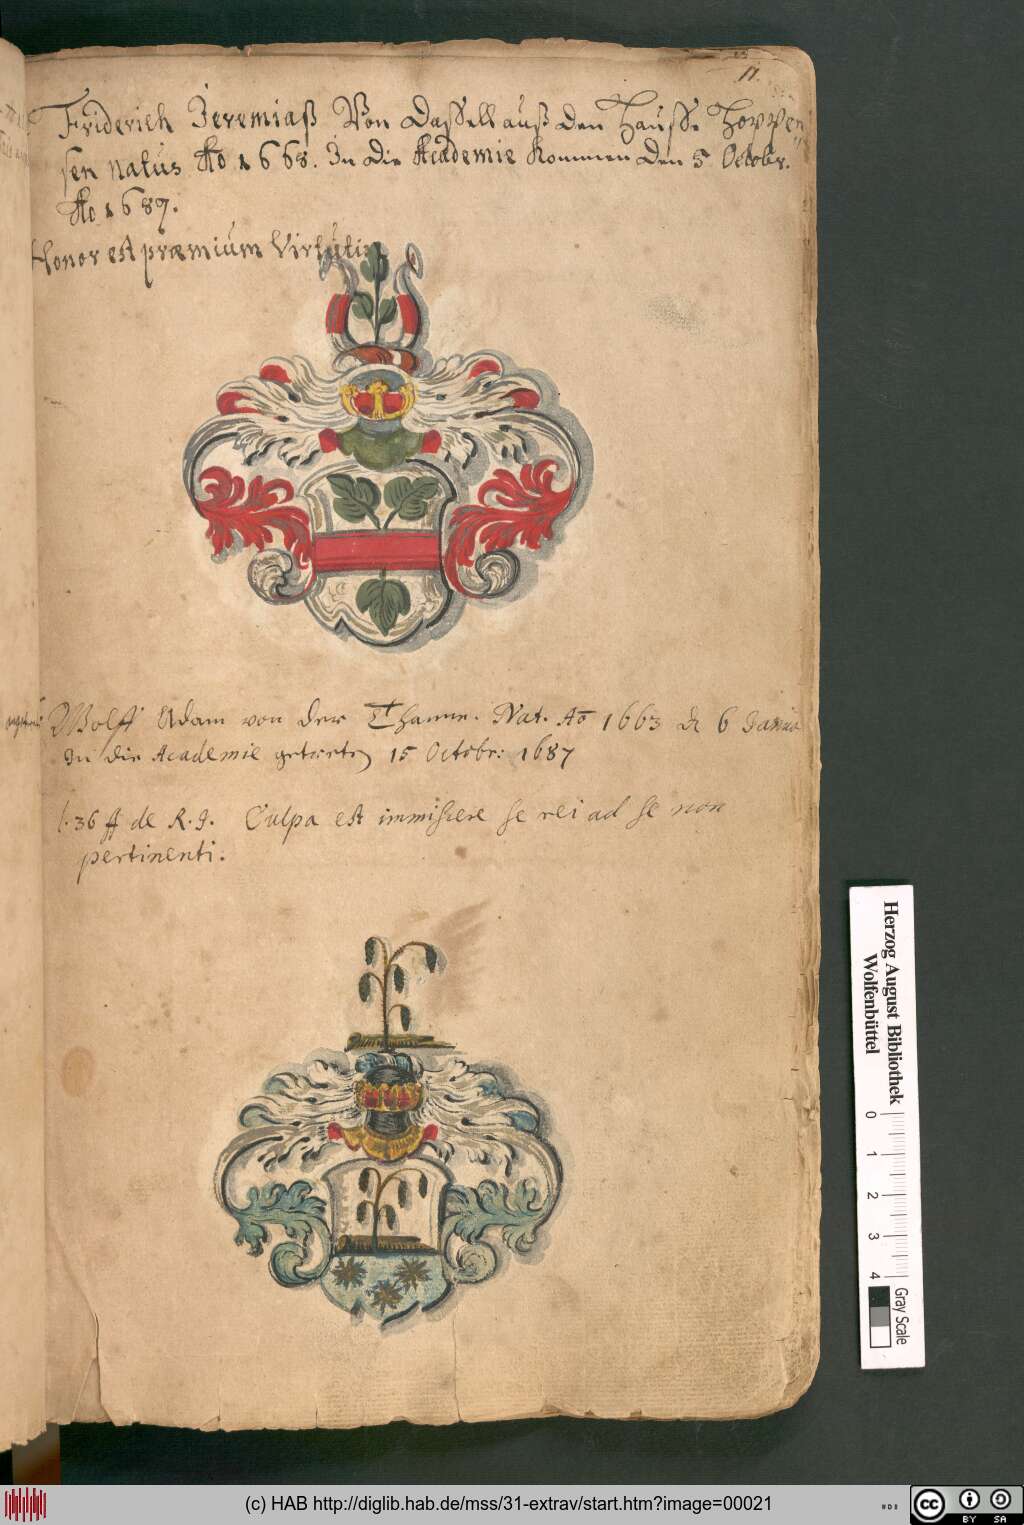 11.
Friderich Jeremiaß Von Dassell auß den Hausse Hoppen
sen natus Ao 1668. In die Academie kommen den 5 Octobr.
Ao 1687.
Honor est præmium Virtutis
Wolff Adam von der Thanne. Nat. Ao 1663 d 6 Janua
In die Academie getreten 15 Octobr: 1687
l. 36 ff de R. J. Culpa est immiscere se rei ad se non
pertinenti.
Herzog August Bibliothek
Wolfenbüttel
0 1 2 3 4
Gray Scale
(c) HAB http://diglib.hab.de/mss/31-extrav/start.htm?image=00021
cc BY SA